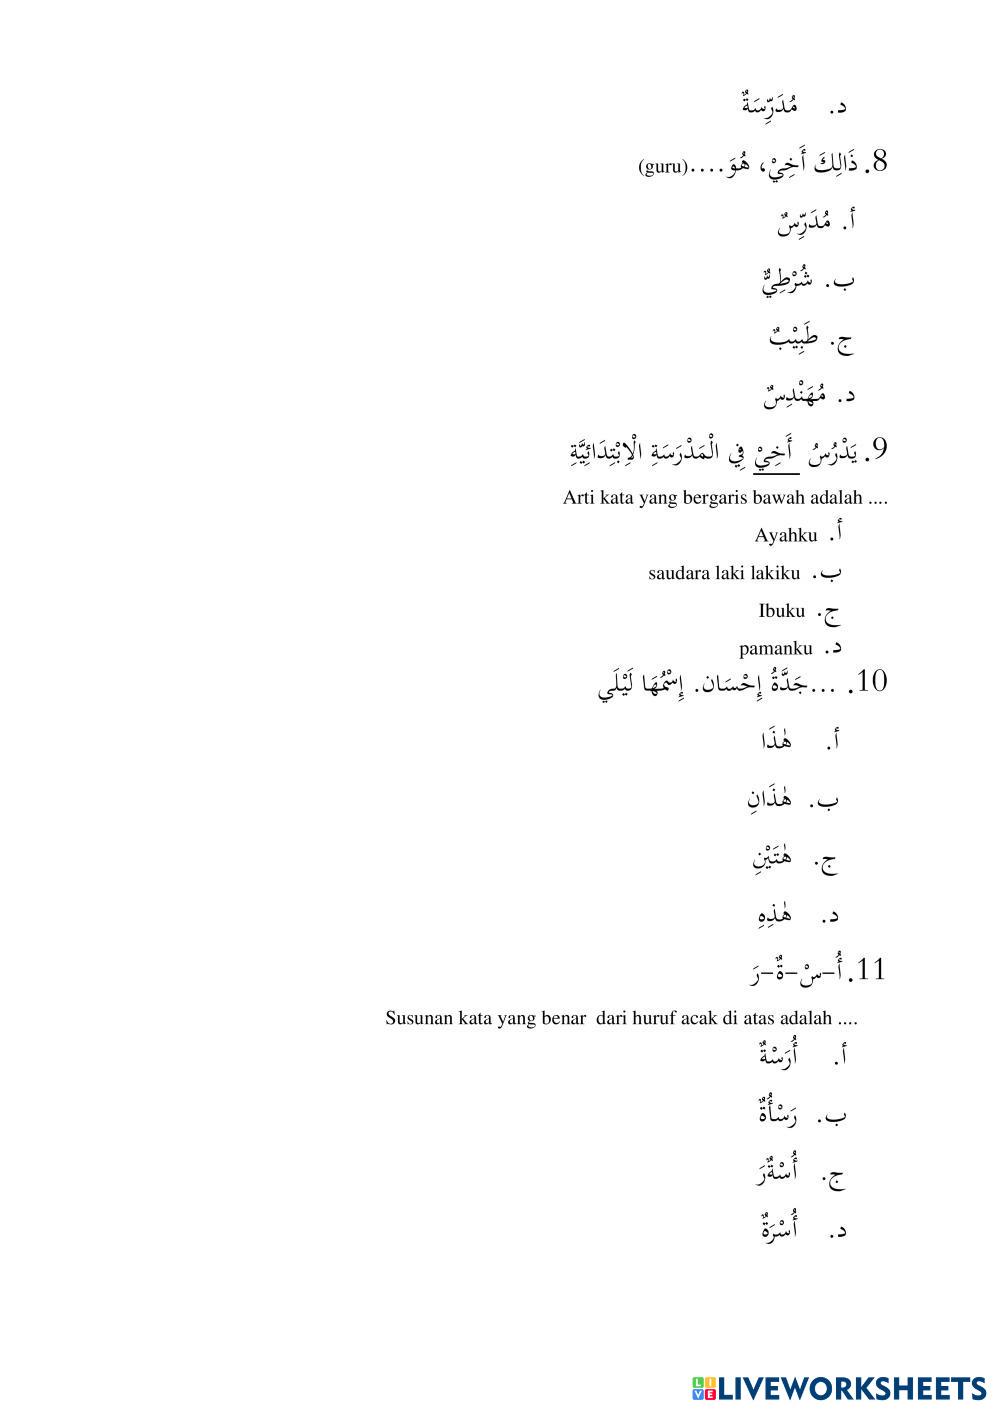 د. مُدَرِّسَةٌ
8. ذَالِكَ أَخِيْ، هُوَ....(guru)
أ. مُدَرِّسٌ
ب. شُرْطِيٌّ
ج. طَبِيْبٌ
د. مُهَنْدِسٌ
9. يَدْرُسُ أَخِيْ فِي الْمَدْرَسَةِ الْاِبْتِدَائِيَّةِ
Arti kata yang bergaris bawah adalah ....
أ. Ayahku
ب. saudara laki lakiku
ج. Ibuku
د. pamanku
10. ...جَدَّةُ إِحْسَان. إِسْمُهَا لَيْلَي
أ. هٰذَا
ب. هٰذَانِ
ج. هٰتَيْنِ
د. هٰذِهِ
11. أُ-سْ-ةٌ-رَ
Susunan kata yang benar dari huruf acak di atas adalah ....
أ. أُرَسْةٌ
ب. رَسْأُةٌ
ج. أُسْةٌرَ
د. أُسْرَةٌ
LIVEWORKSHEETS